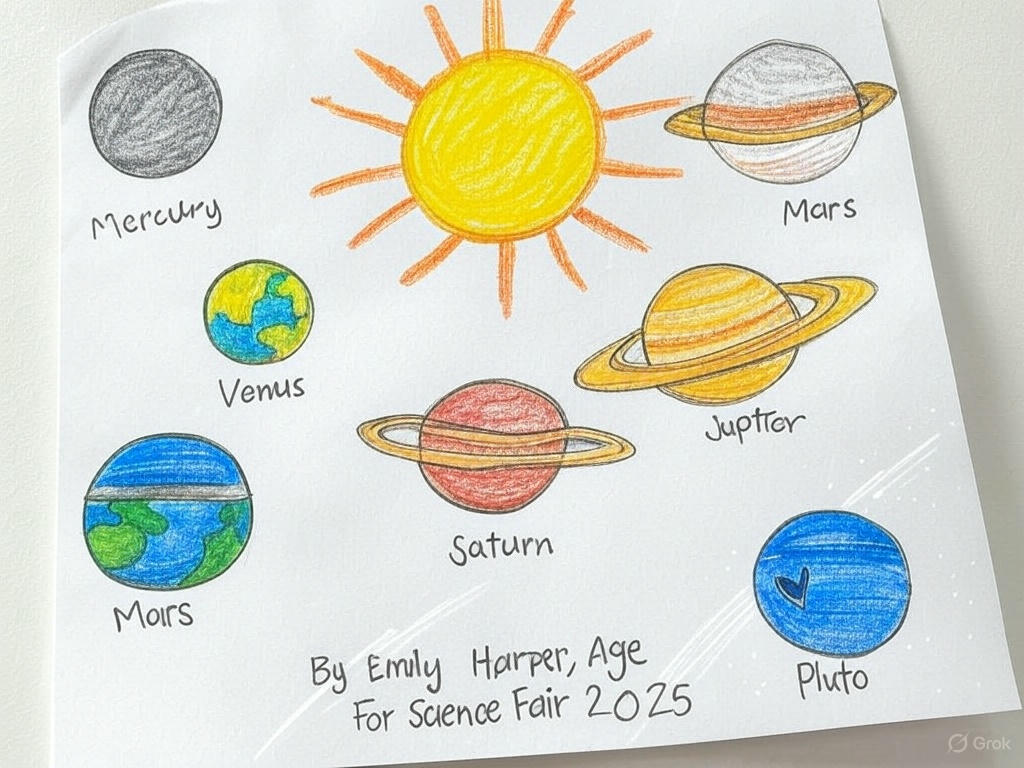 Mercury
Mars
Venus
Juptter
Saturn
Moirs
Pluto
By Emily Harper, Age
For Science Fair 2025
Grok